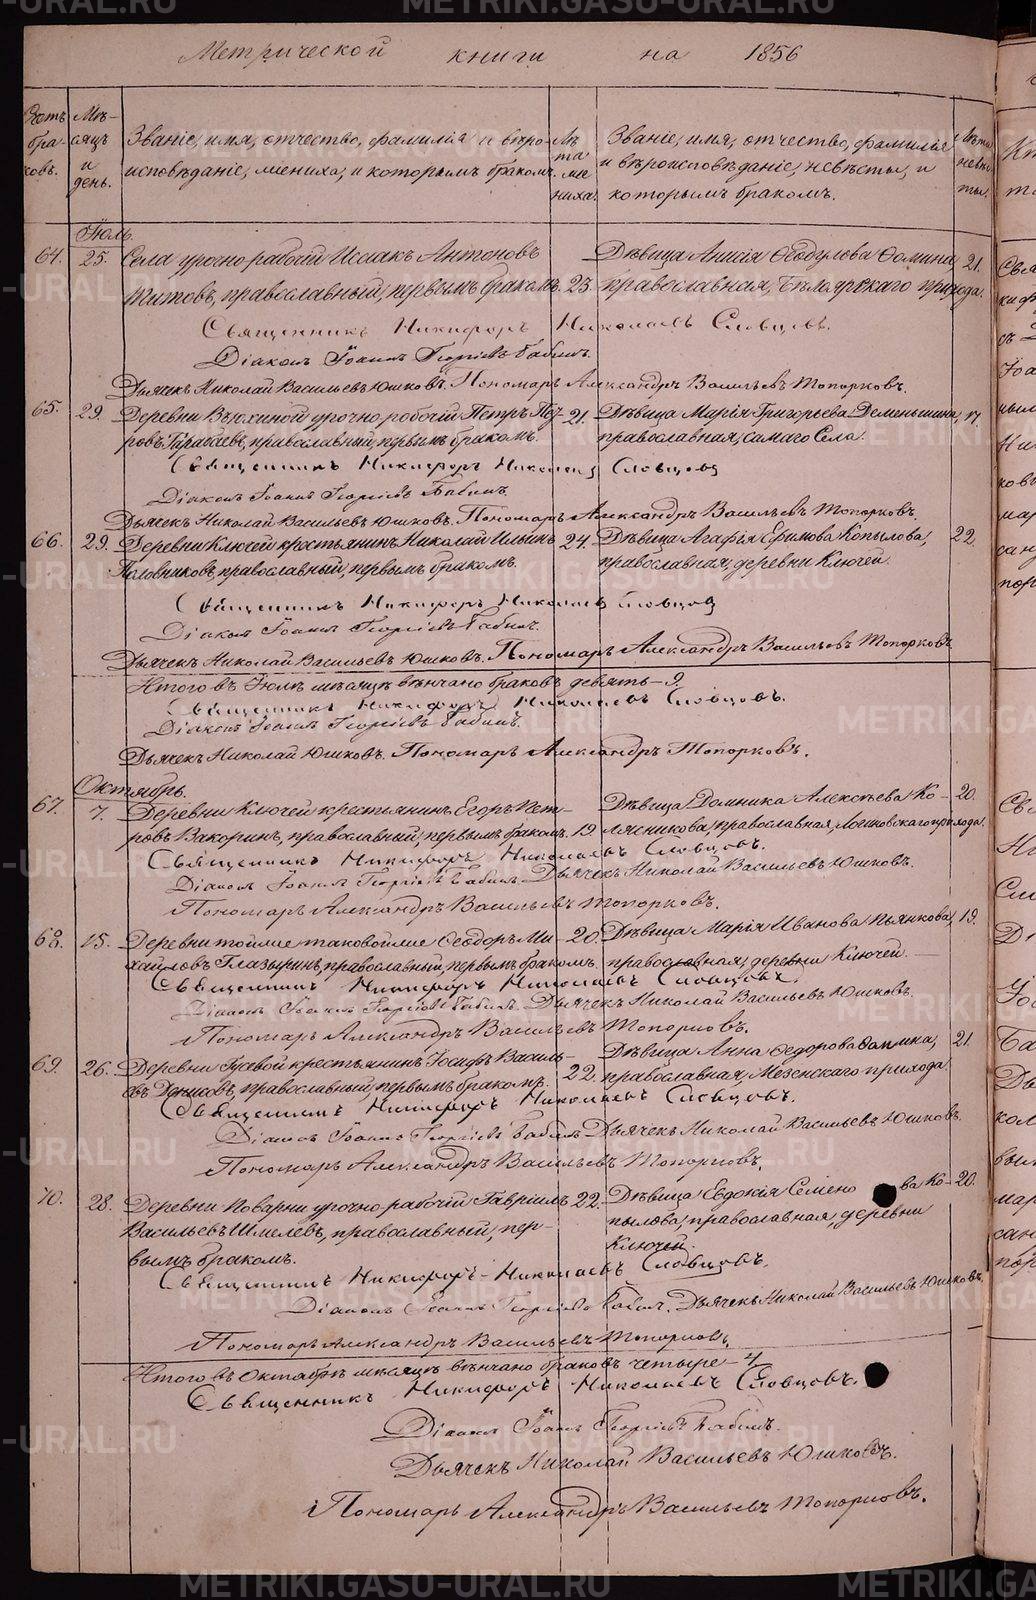 Метрической книги на 1856
Счетъ браковъ.
Мѣсяцъ и день.
Званіе, имя, отчество, фамилія и вѣроисповѣданіе, жениха, и которымъ бракомъ.
Лѣта жениха.
Званіе, имя, отчество, фамилія и вѣроисповѣданіе, невѣсты, и которымъ бракомъ.
Лѣта невѣсты.
Іюль.
64. 25. Села урочно рабочій Исаакъ Антоновъ Дѣвица Анисія Ѳеодулова Ѳомина, 21.
Титовъ, православный, первымъ бракомъ. 23. православная, Бѣлоярскаго прихода.
Священникъ Никифоръ Николаевъ Словцовъ.
Діаконъ Іоаннъ Георгіевъ Бабинъ.
Дьячекъ Николай Васильевъ Юшковъ. Пономарь Александръ Васильевъ Топорковъ.
65. 29. Деревни урочно рабочій Петръ Пет- 21. Дѣвица Марія Григорьева Деменьшина, 17.
ровъ православный, первымъ бракомъ. православная, самаго Села.
Священникъ Никифоръ Николаевъ Словцовъ
Діаконъ Іоаннъ Георгіевъ Бабинъ.
Дьячекъ Николай Васильевъ Юшковъ. Пономарь Александръ Васильевъ Топорковъ.
66. 29. Деревни Ключей крестьянинъ Николай Ильинъ 24. Дѣвица Агафія Ефимова Копылова, 22.
Половниковъ, православный, первымъ бракомъ. православная, деревни Ключей.
Священникъ Никифоръ Николаевъ Словцовъ
Діаконъ Іоаннъ Георгіевъ Бабинъ.
Дьячекъ Николай Васильевъ Юшковъ. Пономарь Александръ Васильевъ Топорковъ
Итого въ Іюлѣ мѣсяцѣ вѣнчано браковъ девять – 9.
Священникъ Никифоръ Николаевъ Словцовъ.
Діаконъ Іоаннъ Георгіевъ Бабинъ.
Дьячекъ Николай Юшковъ. Пономарь Александръ Топорковъ.
Октябрь.
67. 7. Деревни Ключей крестьянинъ Егоръ Пет- Дѣвица Домника Алексѣева Ко- 20.
ровъ Вакоринъ, православный, первымъ бракомъ. 19 лясникова, православная, Логиновскаго прихода.
Священникъ Никифоръ Николаевъ Словцовъ.
Діаконъ Іоаннъ Георгіевъ Бабинъ. Дьячекъ Николай Васильевъ Юшковъ.
Пономарь Александръ Васильевъ Топорковъ.
68. 15. Деревни Ѳеодоръ Ми- 20. Дѣвица Марія Иванова Пьянкова, 19.
хайловъ Глазыринъ, православный, первымъ бракомъ. православная, деревни Ключей.
Священникъ Никифоръ Николаевъ Словцовъ.
Діаконъ Іоаннъ Георгіевъ Бабинъ. Дьячекъ Николай Васильевъ Юшковъ.
Пономарь Александръ Васильевъ Топорковъ.
69. 26. Деревни Гусевой крестьянинъ Іосифъ Василь- Дѣвица Анна Ѳедорова Ѳомина, 21.
евъ Денисовъ, православный, первымъ бракомъ. 22. православная, Мезенскаго прихода.
Священникъ Никифоръ Николаевъ Словцовъ.
Діаконъ Іоаннъ Георгіевъ Бабинъ. Дьячекъ Николай Васильевъ Юшковъ.
Пономарь Александръ Васильевъ Топорковъ.
70. 28. Деревни Поварни урочно рабочій Гавріилъ 22. Дѣвица Евдокія Семено ва Ко- 20.
Васильевъ Шмелевъ, православный, пер- пылова, православная, деревни
вымъ бракомъ. Ключей.
Священникъ Никифоръ Николаевъ Словцовъ.
Діаконъ Іоаннъ Георгіевъ Бабинъ. Дьячекъ Николай Васильевъ Юшковъ.
Пономарь Александръ Васильевъ Топорковъ,
Итого въ Октябрѣ мѣсяцѣ вѣнчано браковъ четыре – 4
Священникъ Никифоръ Николаевъ Словцовъ.
Діаконъ Іоаннъ Георгіевъ Бабинъ.
Дьячекъ Николай Васильевъ Юшковъ.
Пономарь Александръ Васильевъ Топорковъ.
METRIKI.GASO-URAL.RU